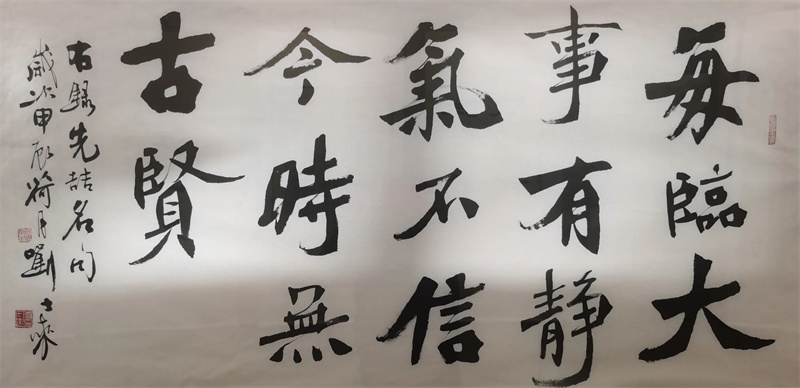 每臨大
事有静
氣不信
今時無
古賢
右録先喆名句
歲次甲辰荷月劉